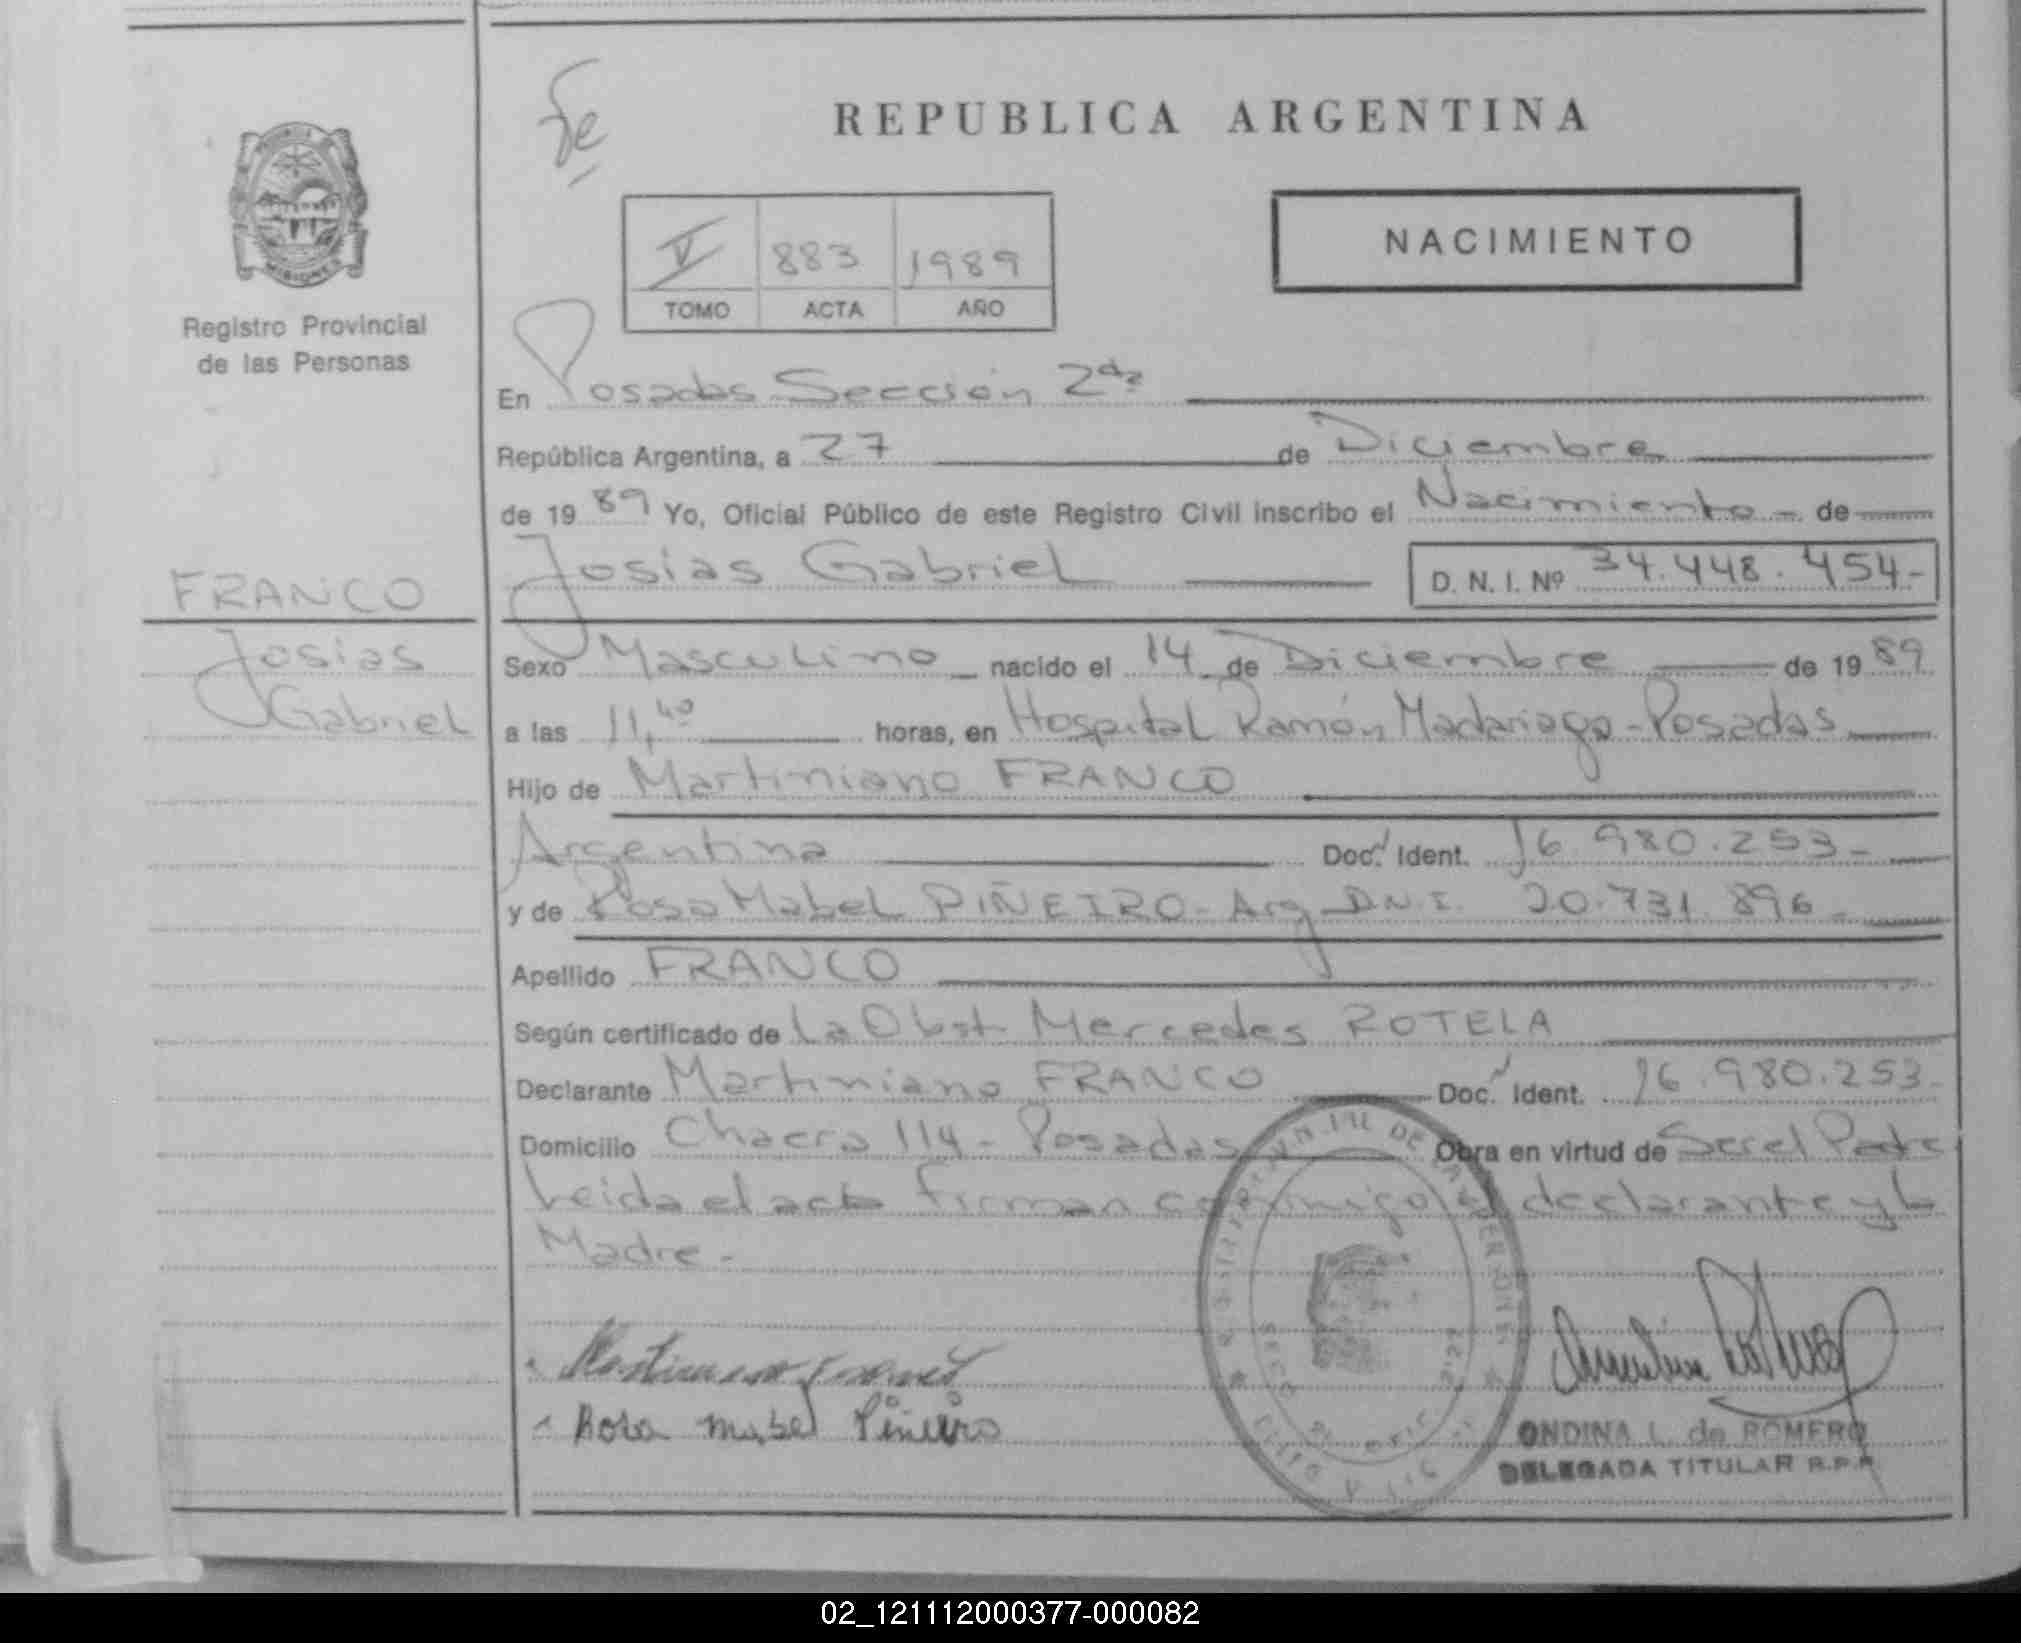 REPUBLICA ARGENTINA
MISIONES
Registro Provincial
de las Personas
V 883 1989
TOMO ACTA AÑO
NACIMIENTO
En Posadas Sección 2da
República Argentina, a 27 de Diciembre
de 1989 Yo, Oficial Público de este Registro Civil inscribo el Nacimiento - de
Josias Gabriel D. N. I. Nº 34.448.454-
FRANCO
Josias
Gabriel
Sexo Masculino nacido el 14 de Diciembre de 1989
a las 11,40 horas, en Hospital Ramón Madariaga - Posadas
Hijo de Martiniano FRANCO
Argentina Doc. Ident. 16.980.253-
y de Rosa Mabel PIÑEIRO - Arg D.N.I. 20.731.896-
Apellido FRANCO
Según certificado de La Obst Mercedes ROTELA
Declarante Martiniano FRANCO Doc. Ident. 16.980.253-
Domicilio Chacra 114 - Posadas Obra en virtud de Ser el Padre
Leida el acta firman conmigo el declarante y la
Madre -
Rosa Mabel Piñeiro
ONDINA L. de ROMERO
DELEGADA TITULAR R.P.P.
02_121112000377-000082